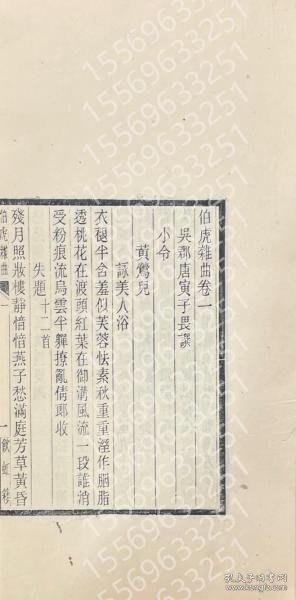 伯虎雜曲卷一
吳郡唐寅子畏譔
小令
黃鶯兒
詠美人浴
衣褪半含羞似芙蓉怯素秋重重溼作胭脂
透桃花在渡頭紅葉在御溝風流一段誰消
受粉痕流烏雲半嚲撩亂倩郎收
失題十二首
殘月照妝樓靜愔愔燕子愁滿庭芳草黃昏
伯虎雜曲
一
飲虹簃
15569633251
15569633251
15569633251
15569633251
15569633251
15569633251
孔夫子旧书网